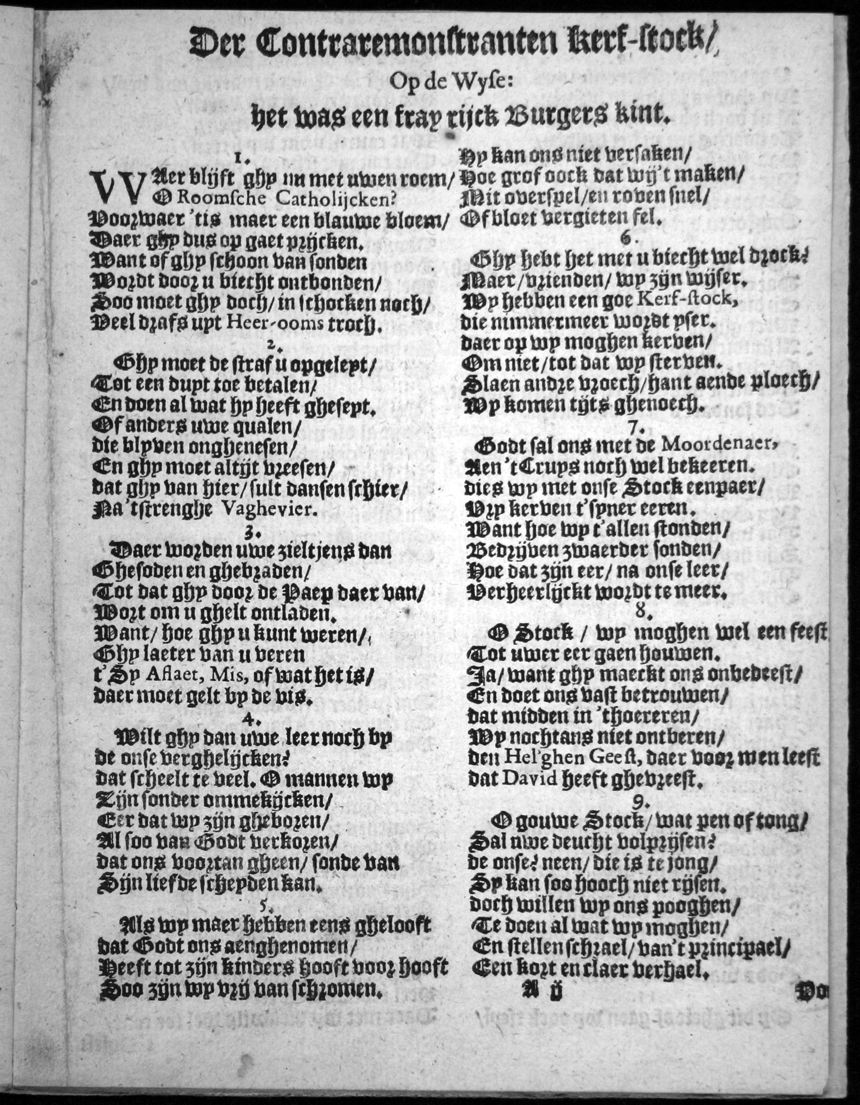 Der Contraremonstranten Kerf-stock/
Op de Wyse:
het was een fray rijck Burgers kint.
1.
WAer blijft ghy nu met uwen roem/
O Roomsche Catholijcken?
Voorwaer 'tis maer een blauwe bloem/
Daer ghy dus op gaet prijcken.
Want of ghy schoon van sonden
Wordt door u biecht ontbonden/
Soo moet ghy doch/in schocken noch/
Veel drafs upt Heer-ooms troch.
2.
Ghy moet de straf u opgeleyt/
Tot een duyt toe betalen/
En doen al wat hy heeft gheseyt.
Of anders uwe qualen/
die blyven onghenesen/
En ghy moet altijt vreesen/
dat ghy van hier/sult dansen schier/
Na 'tstrenghe Vaghevier.
3.
Daer worden uwe zieltjens dan
Ghesoden en ghebraden/
Tot dat ghy door de Paep daer van/
Wort om u ghelt ontladen.
Want/ hoe ghy u kunt weren/
Ghy laeter van u veren
t'Sy Aflaet, Mis, of wat het is/
daer moet gelt by de vis.
4.
Wilt ghy dan uwe leer noch by
de onse verghelijcken?
dat scheelt te veel. O mannen wy
Zijn sonder ommekijcken/
Eer dat wy zijn gheboren/
Al soo van Godt verkoren/
dat ons voortan gheen/sonde van
Sijn liefde scheyden kan.
5.
Als wy maer hebben eens ghelooft
dat Godt ons aenghenomen/
Heeft tot zijn kinders hooft voor hooft
Soo zijn wy vrij van schromen.
Hy kan ons niet versaken/
Hoe grof oock dat wij't maken/
Mit overspel/en roven snel/
Of bloet vergieten fel.
6.
Ghy hebt het met u biecht wel drock?
Maer/vrienden/ wy zijn wijser.
Wy hebben een goe Kerf-stock,
die nimmermeer wordt yser.
daer op wy moghen kerven/
Om niet/tot dat wy sterven.
Slaen andre vroech/hant aende ploech/
Wy komen tijts ghenoech.
7.
Godt sal ons met de Moordenaer,
Aen 'tCruys noch wel bekeeren.
dies wy met onse Stock eenpaer/
Vry kerven t'syner eeren.
Want hoe wy t'allen stonden/
Bedrijven zwaerder sonden/
Hoe dat zijn eer/ na onse leer/
Verheerlijckt wordt te meer.
8.
O Stock / wy moghen wel een feest
Tot uwer eer gaen houwen.
Ja/ want ghy maeckt ons onbedeest/
En doet ons vast betrouwen/
dat midden in 'thoereren/
Wy nochtans niet ontberen/
den Hel'ghen Geest, daer voor men leest
dat David heeft ghevreest.
9.
O gouwe Stock/ wat pen of tong/
Sal uwe deucht volprijsen?
de onse? neen/ die is te jong/
Sy kan soo hooch niet rijsen.
doch willen wy ons pooghen/
Te doen al wat wy moghen/
En stellen schrael/van't principael/
Een kort en claer verhael.
A ij
Do